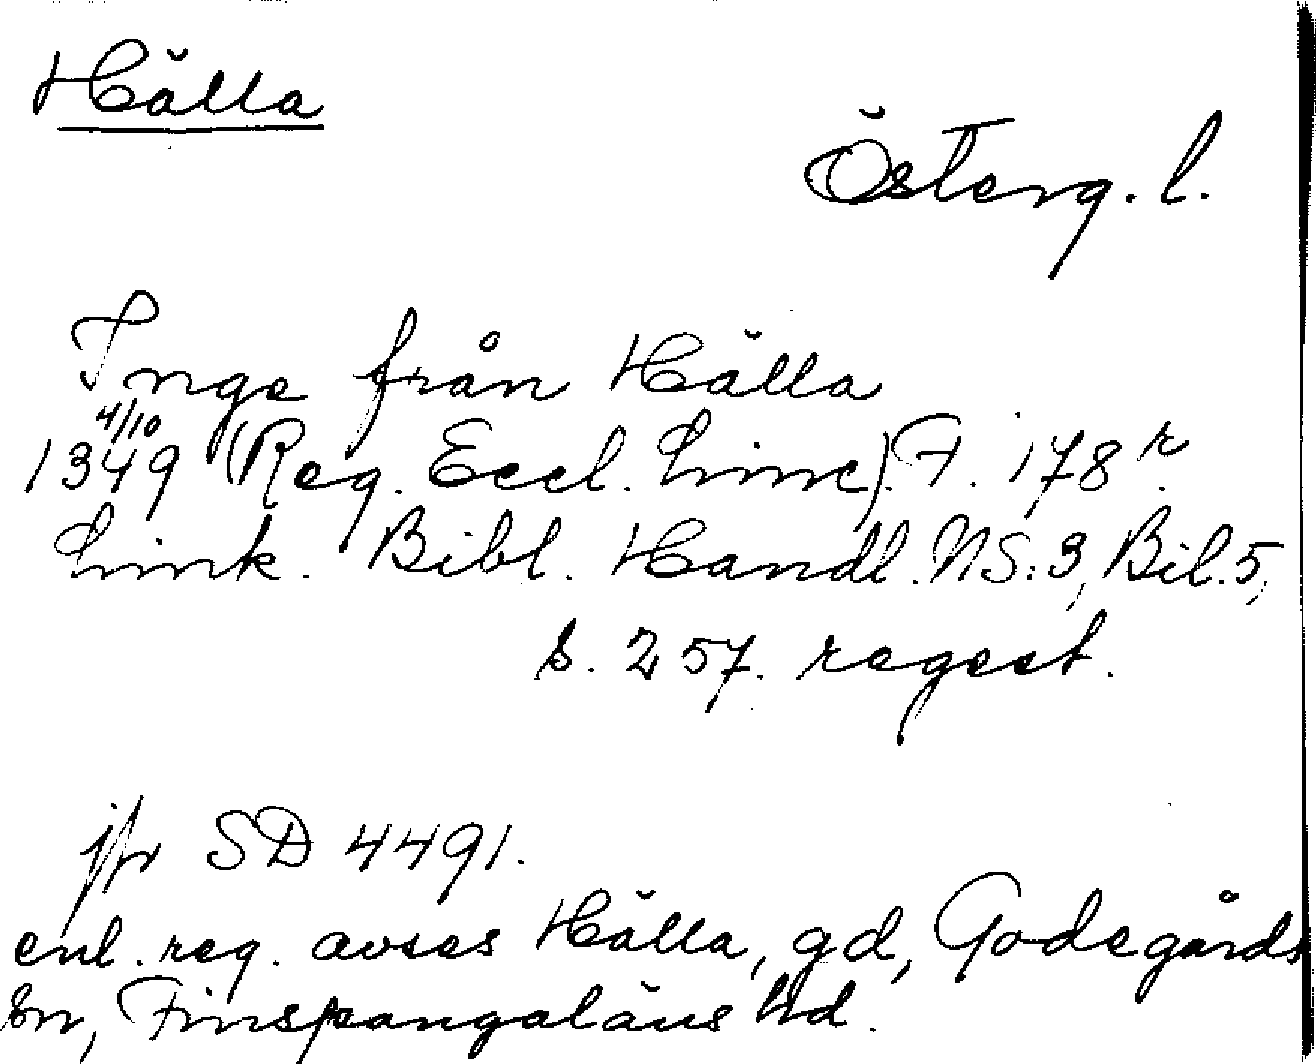 Hälla
Österg. l.
Inge från Hälla
4/10
1349 (Reg. Eccl. Linc). F. 178 r.
Link. Bibl. Handl. NS: 3, Bil. 5,
s. 257. regest.
jfr SD 4491.
enl. reg. avses Hälla, gd, Godegårds
sn, Finspångaläns hd.